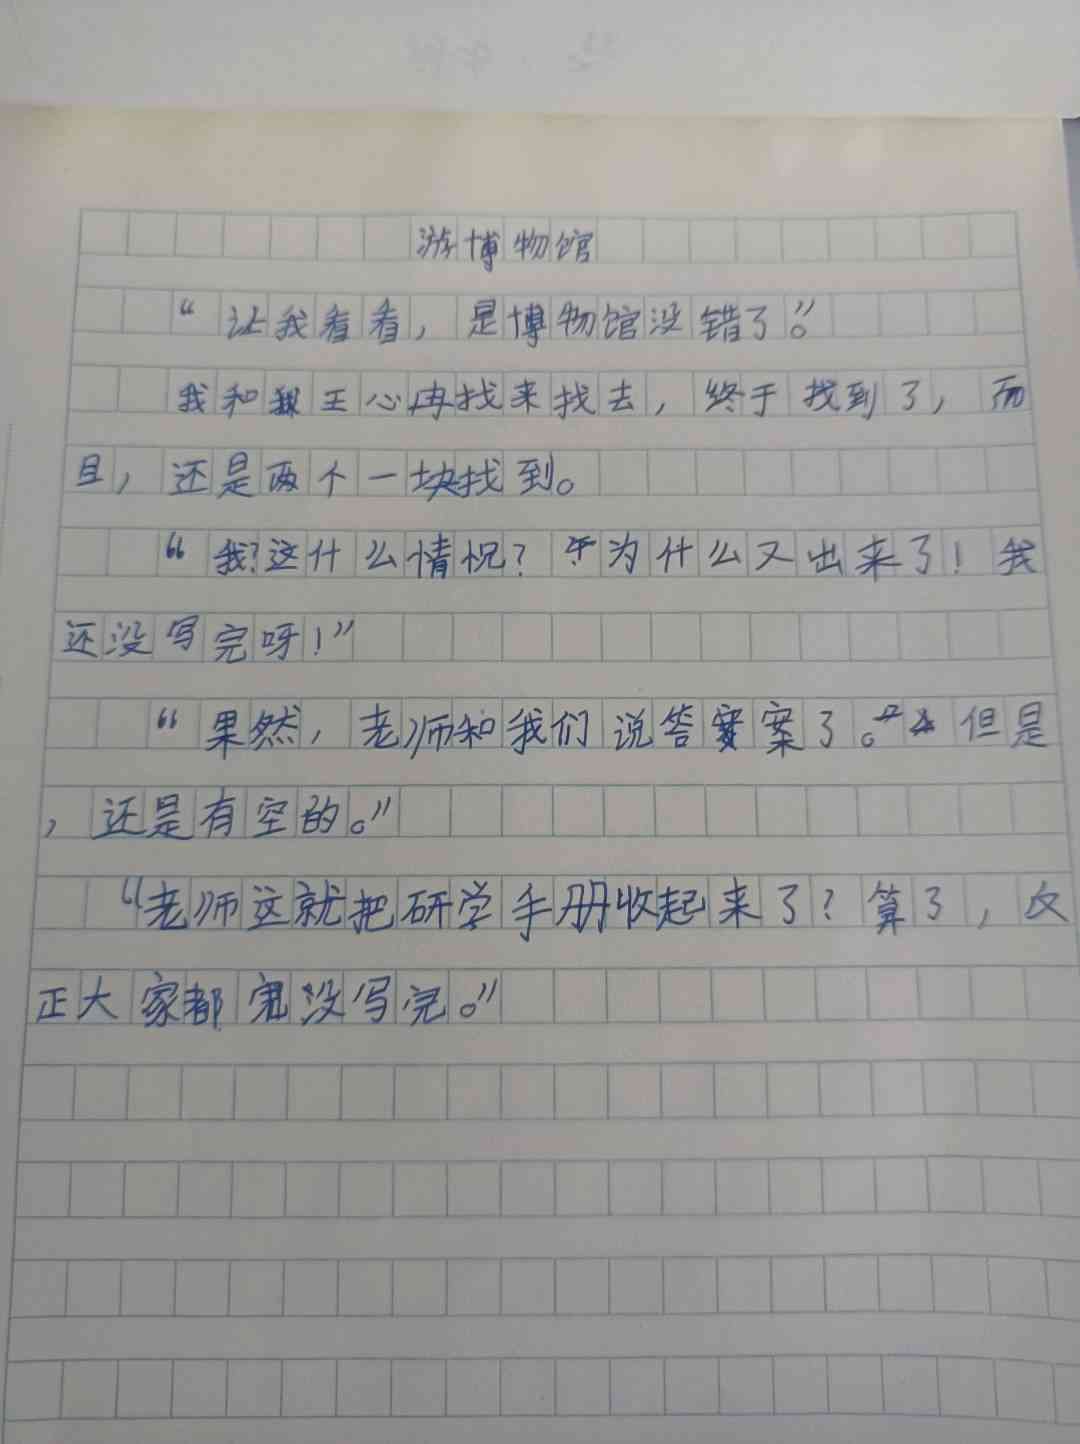 游博物馆
“让我看看，是博物馆没错了。”
我和王心冉找来找去，终于找到了，而
且，还是两个一块找到。
“我？这什么情况？为什么又出来了！我
还没写完呀！”
“果然，老师和我们说答案了。但是
，还是有空的。”
“老师这就把研学手册收起来了？算了，反
正大家都没写完。”